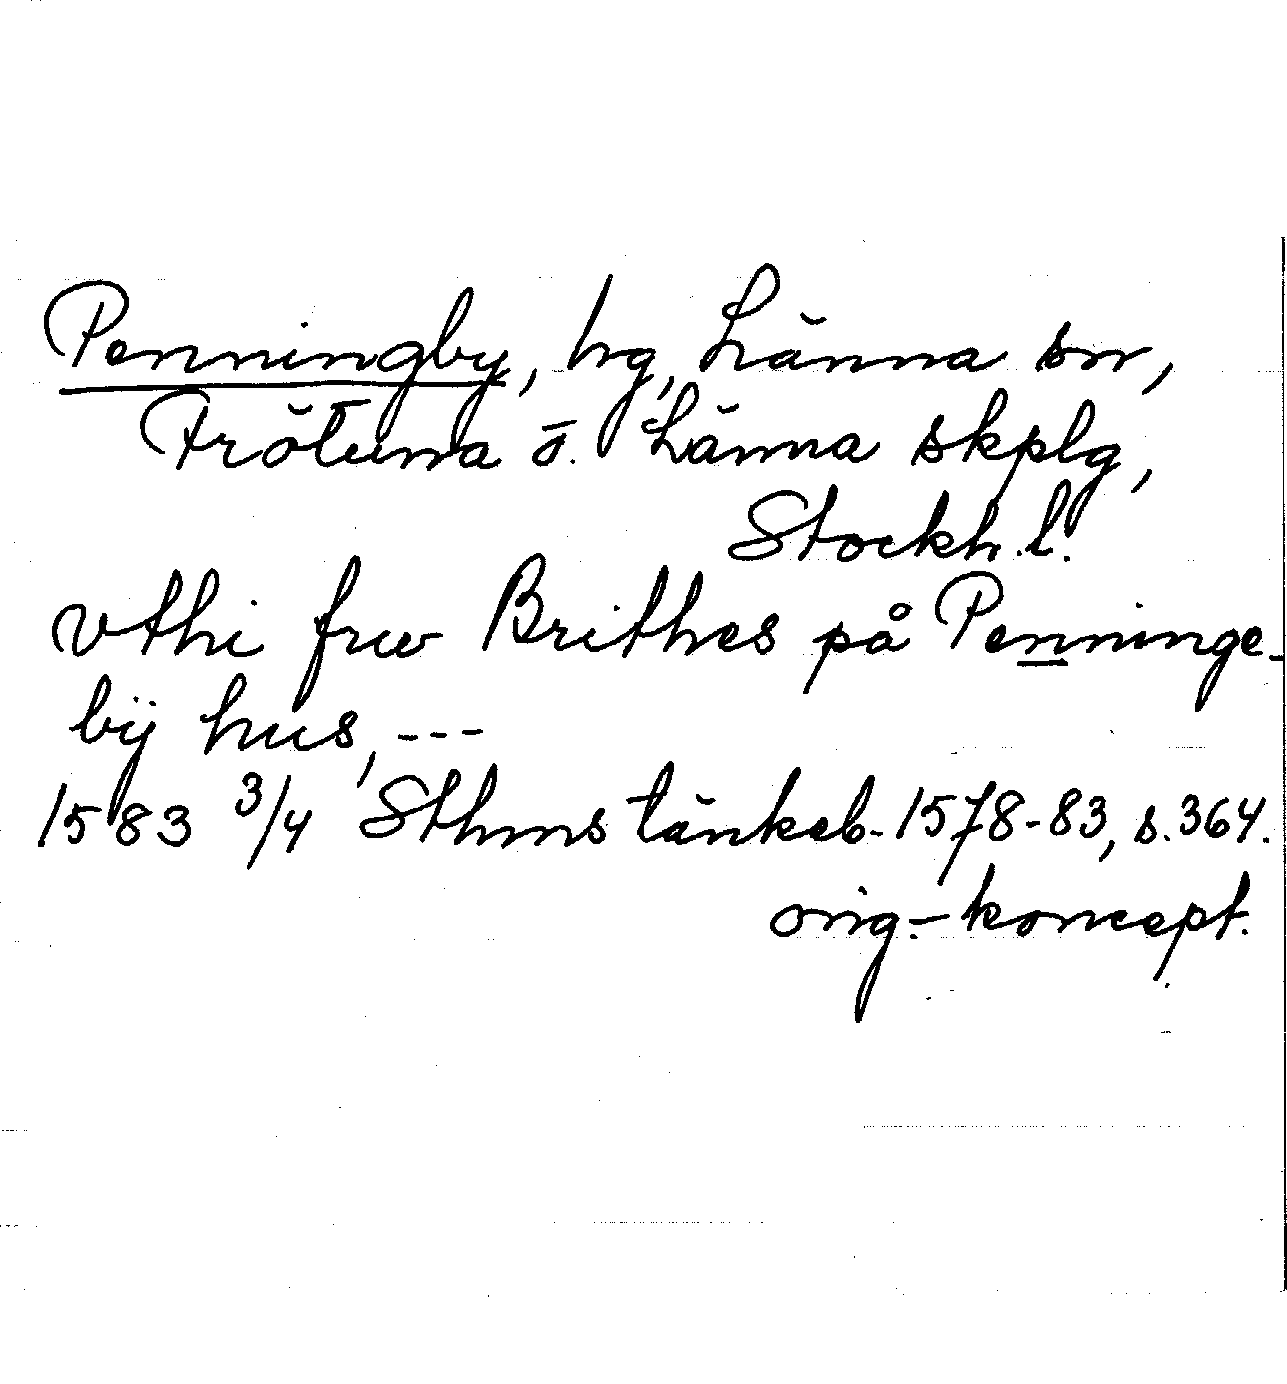 Penningby, hg, Länna sn,
Frötuna o. Länna skplg,
Stockh. l.
vthi frw Brithes på Penninge-
bÿ hus, ---
1583 3/4 Sthms tänkeb. 1578-83, s. 364.
orig.-koncept.